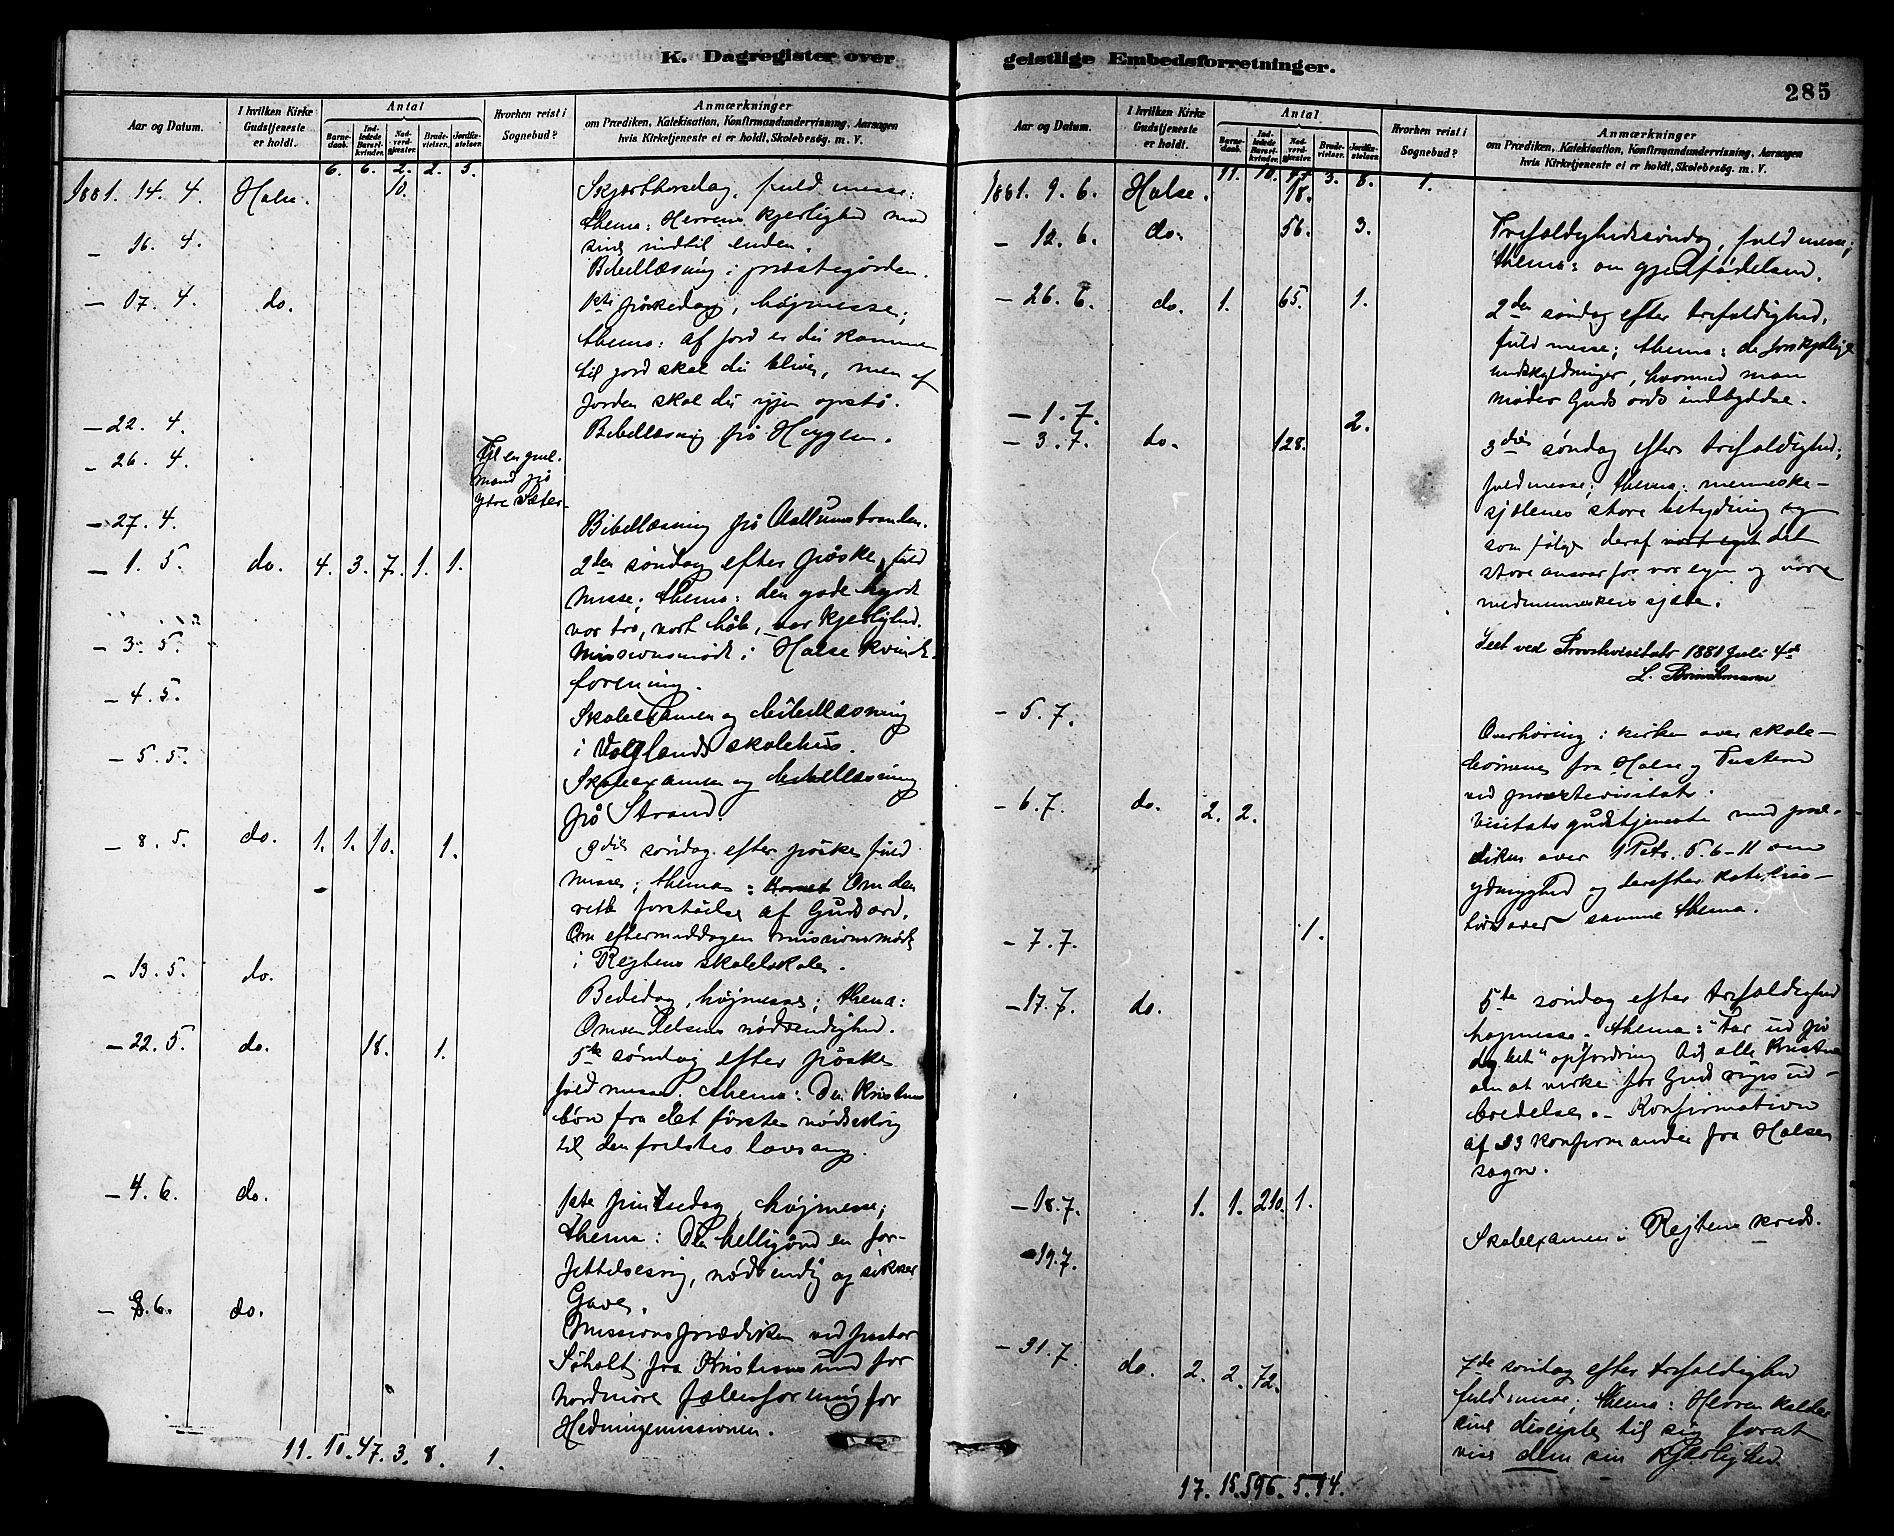 K. Dagregister over geistlige Embedsforretninger.
285
Aar og Datum.
I hvilken Kirke Gudstjeneste er holdt.
Antal
Barne-daab.
Ind-ledede Barsel-kvinder.
Nad-verd-gjester.
Brude-vielser.
Jordfæ-stelser.
Hvorhen reist i Sognebud?
Anmærkninger
om Prædiken, Katekisation, Konfirmandundervisning, Aarsagen
hvis Kirketjeneste ei er holdt, Skolebesøg. m. V.
6. 6. 2. 2. 5.
1881. 14. 4. Halse. 10. Skjærthorsdag, fuld messe;
thema: Herrens kjerlighed mod
sine indtil enden.
- 16. 4. Bibellæsning i præstegården.
- 17. 4. do. 1ste påskedag, højmesse;
thema: af jord er du kommen
til jord skal du blive, men af
Jorden skal du igjen opstå.
- 22. 4. Bibellæsning på Heggem.
- 26. 4. Til en gml.
mand på
ytre Sæter.
- 27. 4. Bibellæsning på
- 1. 5. do. 4. 3. 7. 1. 1. 2den søndag efter påske, fuld
messe; thema: den gode hyrde
vor tro, vort håb, vor kjerlighed.
- 3. 5. Missionsmøde i Halse kvinde-
forening.
- 4. 5. Skoleexamen og bibellæsning
i Valslands skolehus.
- 5. 5. Skoleexamen og bibellæsning
på Strand.
- 8. 5. do. 1. 1. 10. 1. 3die søndag efter påske, fuld
messe; thema: Om den
rette forståelse af Guds ord.
Om eftermiddagen missionsmøde
i Rejtens skolelokale.
- 13. 5. do. Bededag, højmesse; thema:
Omvendelsens nødvendighed.
- 22. 5. do. 18. 1. 5te søndag efter påske
fuld messe. thema: Den kristnes
bøn fra det første nødskrig
til den frelstes lovsang.
- 4. 6. do. 1ste pintsedag, højmesse;
thema: Den helligånd en for-
jettelsesrig, nødvendig og sikker
Gave.
- 8. 6. do. Missionsprædiken ved pastor
Søholt fra Kristiansund for
Nordmøre fællesforening for
Hedningemissionen.
11. 10. 47. 3. 8. 1.
Aar og Datum.
I hvilken Kirke Gudstjeneste er holdt.
Antal
Barne-daab.
Ind-ledede Barsel-kvinder.
Nad-verd-gjester.
Brude-vielser.
Jordfæ-stelser.
Hvorhen reist i Sognebud?
Anmærkninger
om Prædiken, Katekisation, Konfirmandundervisning, Aarsagen
hvis Kirketjeneste ei er holdt, Skolebesøg. m. V.
11. 10. 47. 3. 8. 1.
1881. 9. 6. Halse. 18.
- 12. 6. do. 56. 3. Trefoldighedssøndag, fuld messe;
thema: om gjenfødelsen.
- 26. 6. do. 1. 65. 1. 2den søndag efter trefoldighed,
fuld messe; thema: de forskjellige
undskyldninger, hvormed man
møder Guds ords indbydelse.
- 1. 7. 2.
- 3. 7. do. 128. 3die søndag efter trefoldighed;
fuld messe; thema: menneske-
sjælenes store betydning og
som følge deraf vort eget det
store ansvar for vor egen og vore
medmenneskers sjæle.
Seet ved Provstevisitats 1881 Juli 4de
- 5. 7. Overhøring i kirken over skole-
børnene fra Halse og Tustern
ved provstevisitats.
- 6. 7. do. 2. 2. Visitatsgudstjeneste med præ-
diken over 1 Petr. 5. 6-11 om
ydmyghed og derefter katekisa-
tion over samme thema.
- 7. 7. 1.
- 17. 7. do. 5te søndag efter trefoldighed
højmesse. thema: "Far ud på
dybet" opfordring til alle kristne
om at virke for Guds riges ud-
bredelse. - Konfirmation
af 33 konfirmander fra Halse
sogn.
- 18. 7. 1. 1. 210. 1.
- 19. 7. Skoleexamen i Rejtens kreds.
- 31. 7. do. 2. 2. 72. 7de søndag efter trefoldighed
fuld messe; thema: Herren kalder
sine disciple til sig forat
vise dem sin kjerlighed
17. 15. 596. 5. 14.